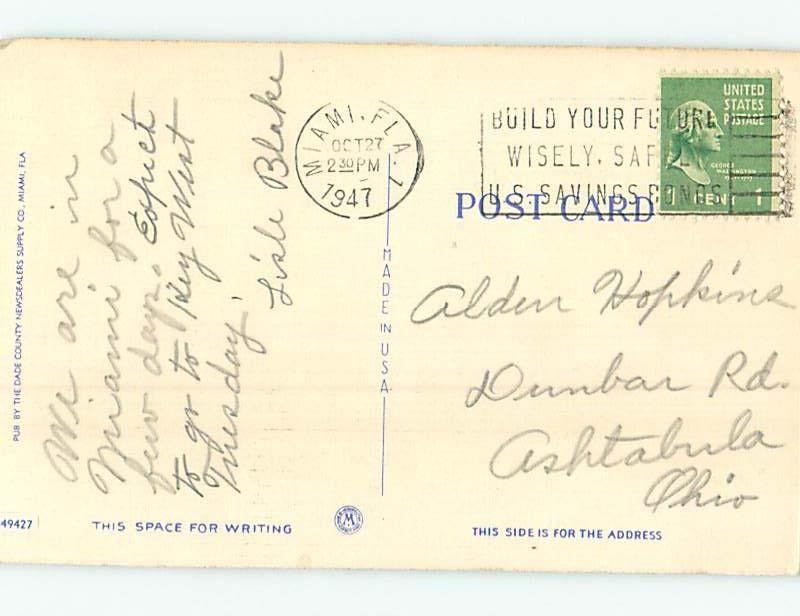 We are in
Miami for a
few days. Expect
to go to Key West
Tuesday.
Lisle Blake
MIAMI, FLA. 1
OCT 27
2 30 PM
1947
BUILD YOUR FUTURE
WISELY, SAFELY
U.S. SAVINGS BONDS
UNITED
STATES
POSTAGE
GEORGE
WASHINGTON
1 CENT 1
POST CARD
Alden Hopkins
Dunbar Rd.
Ashtabula
Ohio
MADE IN U.S.A.
PUB. BY THE DADE COUNTY NEWSDEALERS SUPPLY CO., MIAMI, FLA
49427
THIS SPACE FOR WRITING
M
THIS SIDE IS FOR THE ADDRESS